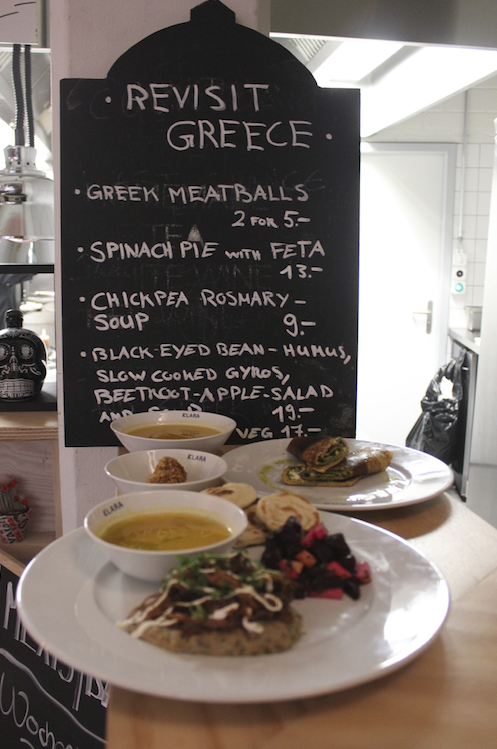 • REVISIT
GREECE •
• GREEK MEATBALLS
2 FOR 5.–
• SPINACH PIE WITH FETA
13.–
• CHICKPEA ROSMARY –
SOUP 9.–
• BLACK-EYED BEAN – HUMUS,
SLOW COOKED GYROS,
BEETROOT-APPLE-SALAD
AND 19.–
VEG 17.–
KLARA
KLARA
KLARA